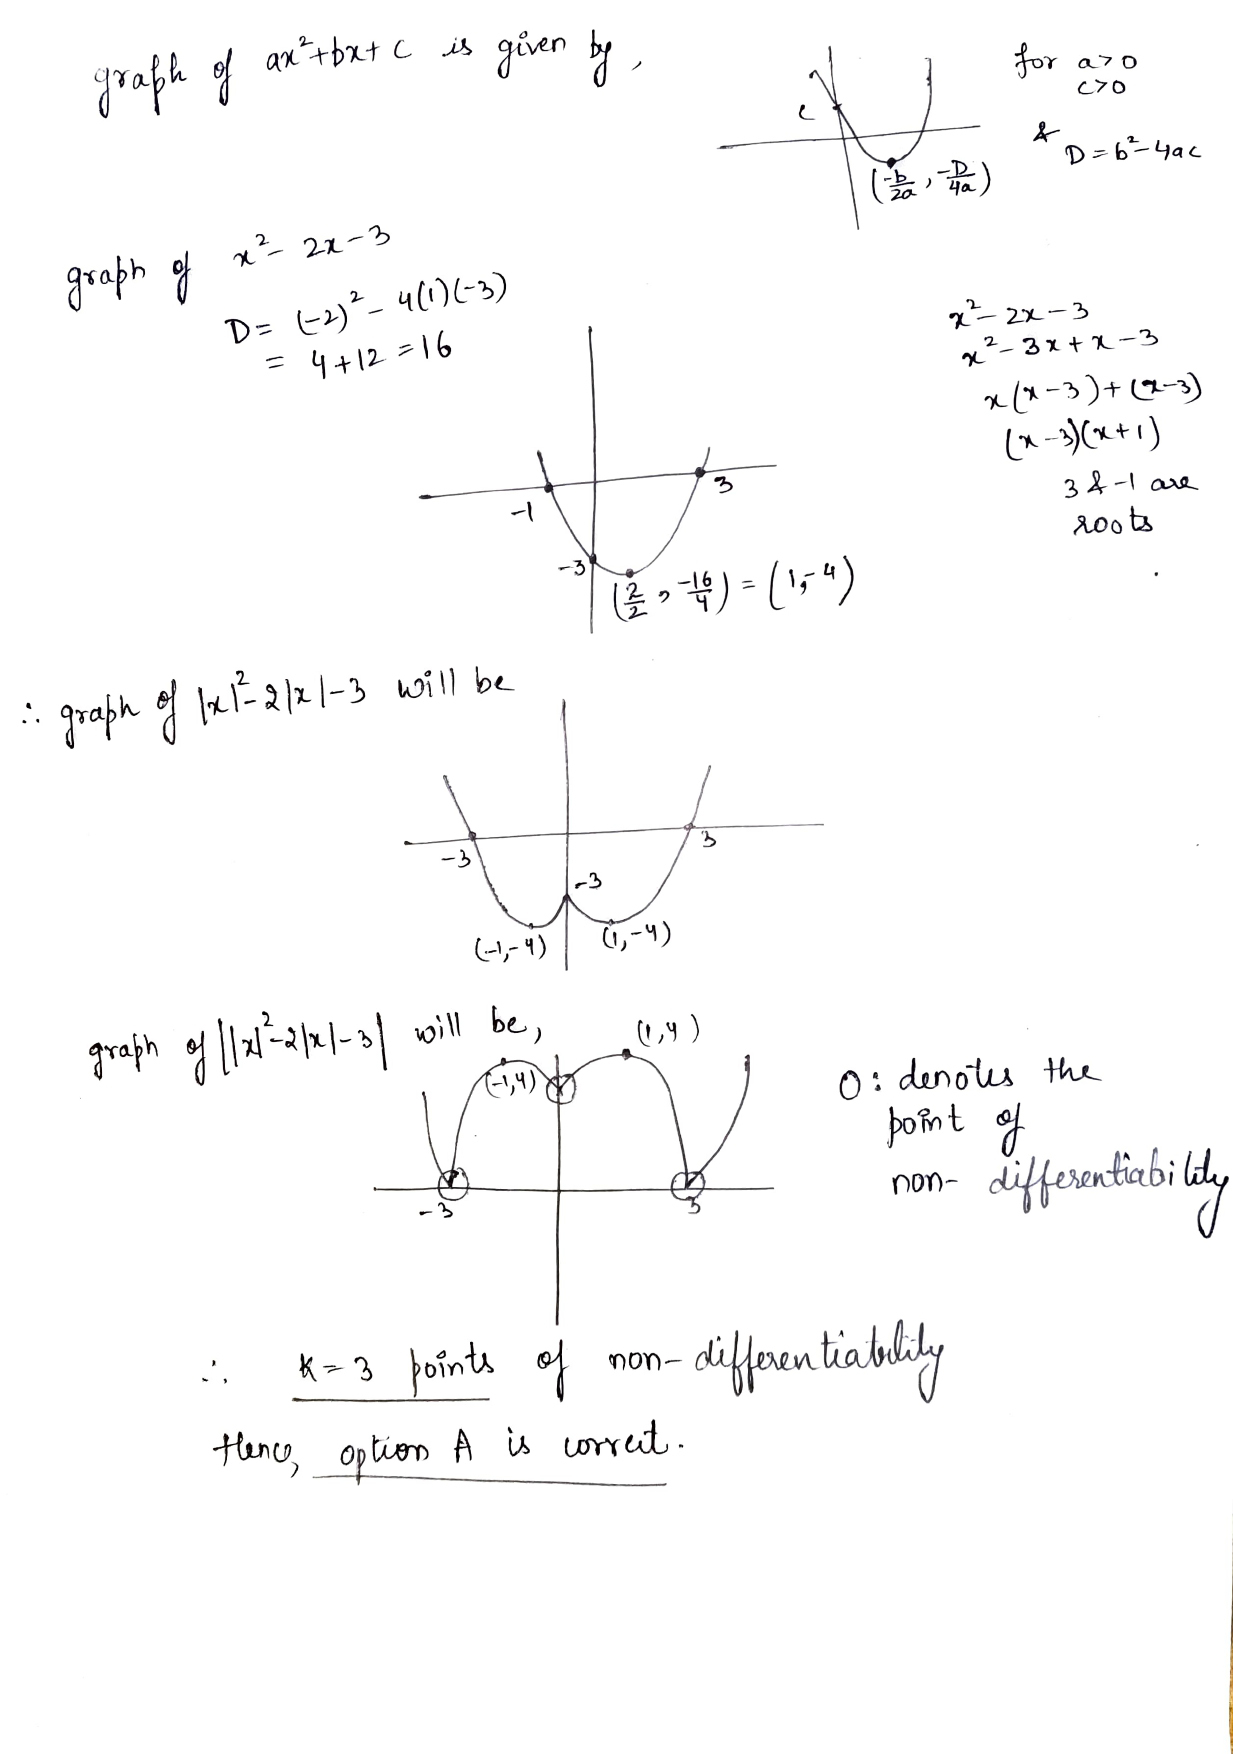 graph of ax²+bx+c is given by,
for a>0
c>0
& D=b²-4ac
c
(-b/2a, -D/4a)
graph of x²-2x-3
D= (-2)²-4(1)(-3)
= 4+12=16
x²-2x-3
x²-3x+x-3
x(x-3)+(x-3)
(x-3)(x+1)
3 & -1 are
roots
-1
3
-3
(2/2, -16/4) = (1,-4)
∴ graph of |x|²-2|x|-3 will be
-3
3
-3
(-1,-4)
(1,-4)
graph of ||x|²-2|x|-3| will be,
(1,4)
(-1,4)
-3
3
O: denotes the
point of
non-differentiability
∴ K=3 points of non-differentiability
Hence, option A is correct.